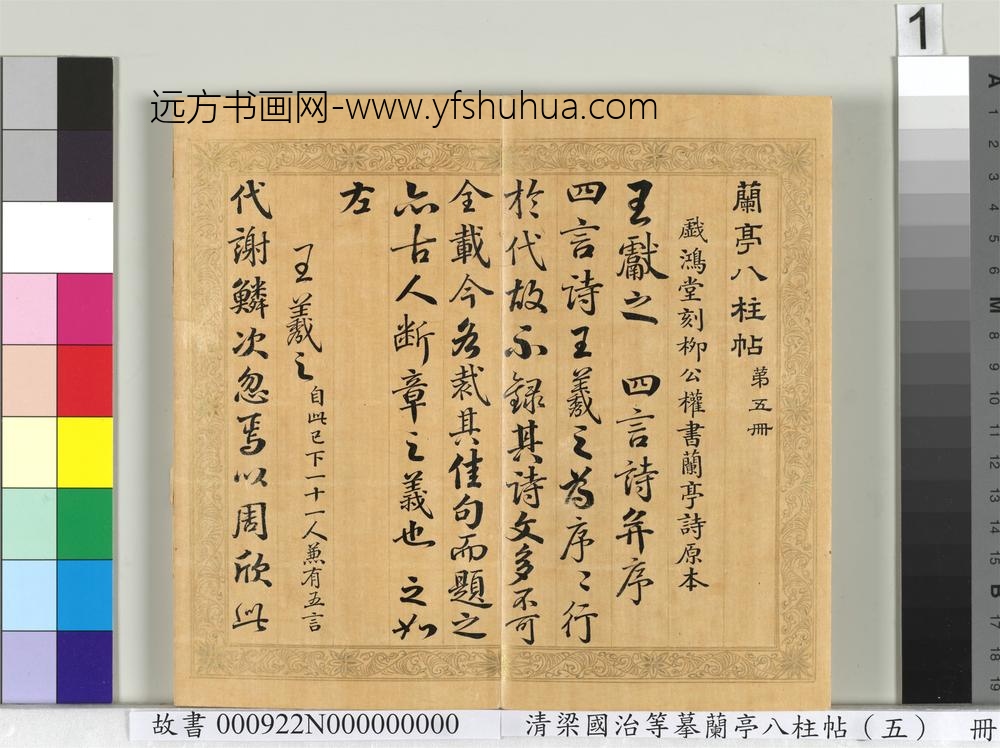 远方书画网-www.yfshuhua.com
1
蘭亭八柱帖 第五冊
戲鴻堂刻柳公權書蘭亭詩原本
王獻之 四言詩并序
四言詩王羲之為序序行
於代故不錄其詩文多不可
全載今各裁其佳句而題之
亦古人断章之義也 之如
左
王羲之 自此已下一十一人兼有五言
代謝鱗次忽焉以周欣此
故書 000922N000000000
清梁國治等摹蘭亭八柱帖（五） 冊
A 1 2 3 4 5 6 M 8 9 10 11 12 13 14 15 B 17 18 19